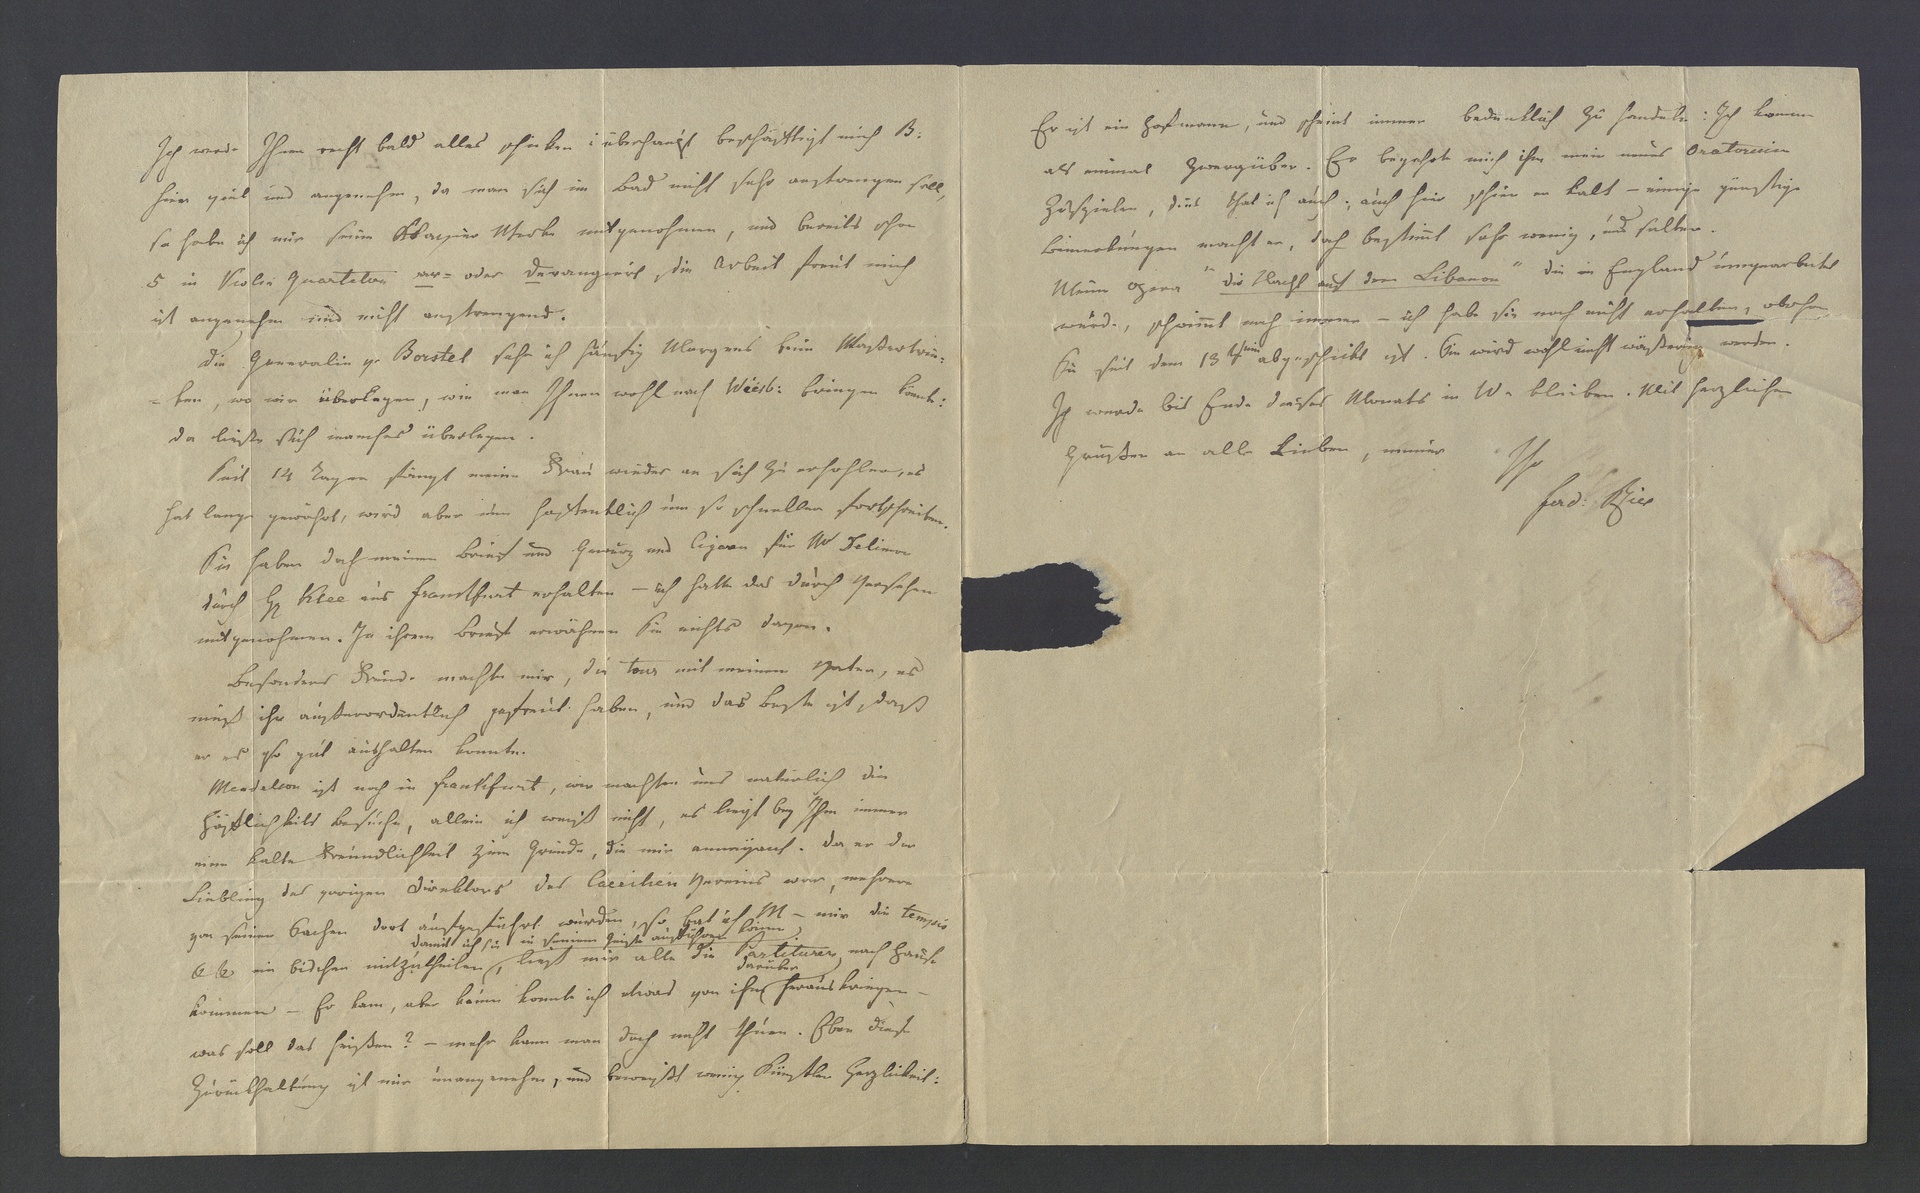 Ich werde Ihnen recht bald alles schicken: überhaupt beschäftigt mich B:
hier viel und angenehm, da man sich im Bad nicht sehr anstrengen soll,
so habe ich mir seine Clavier Werke mitgenohmen, und bereits schon
5 in Violin Quartetten ar= oder derangiert, die Arbeit freut mich
ist angenehm und nicht anstrengend.
Die Generalin v. Borstel sehe ich häufig Morgens beim Waßertrin=
=ken, wo wir überlegen, wie man Ihnen wohl nach Wiesb: bringen könte:
da ließe sich manches überlegen.
Seit 14 Tagen fängt meine Frau wieder an sich zu erhohlen, es
hat lange gewährt, wird aber nun hoffentlich um so schneller fortschreiten.
Sie haben doch meinen Brief und Gewürz und Cigarn für
durch H Klee aus Frankfurt erhalten – ich hatte das durch Versehen
mitgenohmen. In ihrem Briefe erwähnen Sie nichts davon.
Besondere Freude machte mir, die tour mit meinem Vater, es
muß ihn außerordentlich gefreut haben, und das Beste ist, daß
er es so gut aushalten konnte.
Mendelson ist noch in Frankfurt, wir machten uns natürlich die
Höflichkeits Besuche, allein ich weiß nicht, es liegt bey Ihm immer
eine kalte Freundlichkeit zum Grunde, die mir annoyant. Da er der
Liebling des vorigen Direktors des Caecilien Vereins war, mehrere
von seinen Sachen dort aufgeführt wurden, so bat ich M – mir die tempis
damit ich sie in seinem Geiste aufführen könne
& & ein bischen mitzutheilen, ließ mir alle die Partituren nach Hause
darüber
kommen – Er kam, aber kaum konnte ich etwas von ihm herauskriegen –
was soll das heißen? – mehr kann man doch nicht thuen. Eben diese
Zurückhaltung ist mir unangenehm, und beweißt wenig Künstler Herzlichkeit:
Er ist ein Hofmann, und scheint immer bedenklich zu handeln: Ich komme
als einmal gegenüber. Er begehrte mich ihm mein neues Oratorium
zuspielen, dies that ich auch; auch hier schien er kalt – einige günstige
Bemerkungen machte er, doch bestimt sehr wenig, und selten.
Meine Opera "die Nacht auf dem Libanon" die in England umgearbeitet
wurde, schwimt noch immer – ich habe sie noch nicht erhalten, obschon
Sie seit dem 13 abgeschickt ist. Sie wird wohl nicht wäßerig werden.
Ich werde bis Ende dieses Monats in W– bleiben. Mit herzlichen
Grüßen an alle Lieben, immer
Ihr
Ferd: Ries